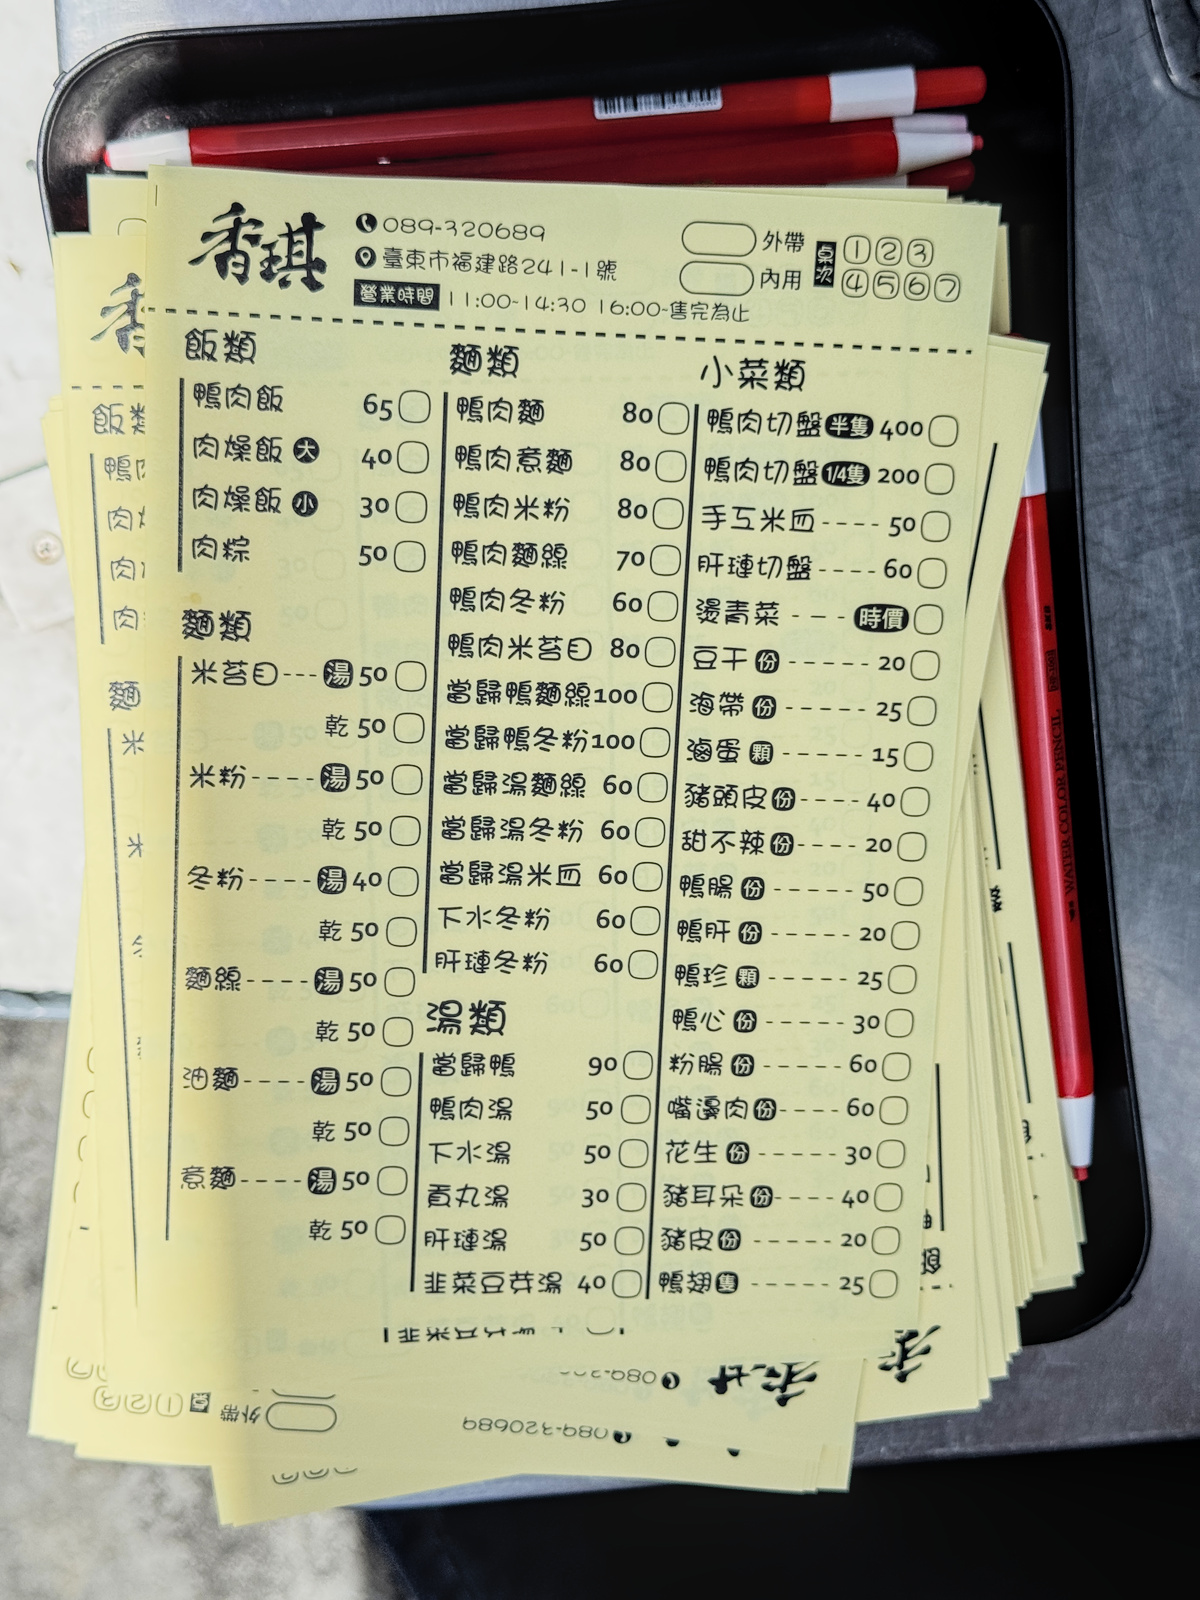 香琪
089-320689
臺東市福建路241-1號
營業時間 11:00-14:30 16:00-售完為止
外帶
內用
桌次 1 2 3
4 5 6 7
飯類
鴨肉飯 65
肉燥飯 大 40
肉燥飯 小 30
肉粽 50
麵類
米苔目--- 湯 50
乾 50
米粉---- 湯 50
乾 50
冬粉---- 湯 40
乾 50
麵線---- 湯 50
乾 50
油麵---- 湯 50
乾 50
意麵---- 湯 50
乾 50
麵類
鴨肉麵 80
鴨肉意麵 80
鴨肉米粉 80
鴨肉麵線 70
鴨肉冬粉 60
鴨肉米苔目 80
當歸鴨麵線 100
當歸鴨冬粉 100
當歸湯麵線 60
當歸湯冬粉 60
當歸湯米血 60
下水冬粉 60
肝璉冬粉 60
湯類
當歸鴨 90
鴨肉湯 50
下水湯 50
貢丸湯 30
肝璉湯 50
韭菜豆芽湯 40
小菜類
鴨肉切盤 半隻 400
鴨肉切盤 1/4隻 200
手工米血---- 50
肝璉切盤---- 60
燙青菜 --- 時價
豆干 份 ----- 20
海帶 份 ----- 25
滷蛋 顆 ----- 15
豬頭皮 份 ---- 40
甜不辣 份 ---- 20
鴨腸 份 ----- 50
鴨肝 份 ----- 20
鴨珍 顆 ----- 25
鴨心 份 ----- 30
粉腸 份 ----- 60
嘴邊肉 份 ---- 60
花生 份 ----- 30
豬耳朵 份 ---- 40
豬皮 份 ----- 20
鴨翅 隻 ----- 25
WATER COLOR PENCIL
089-320689
外帶
1 2 3